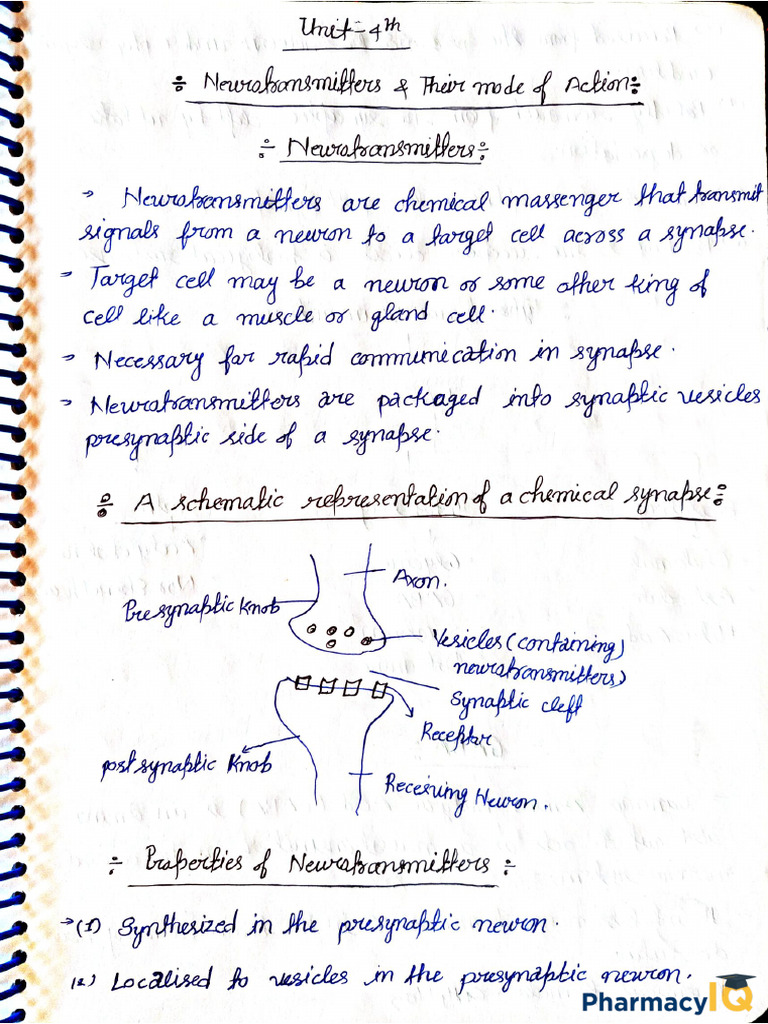 Unit-4th
÷ Neurotransmitters & Their mode of Action÷
÷ Neurotransmitters÷
→ Neurotransmitters are chemical massenger that transmit
signals from a neuron to a target cell across a synapse.
→ Target cell may be a neuron or some other king of
cell like a muscle or gland cell.
→ Necessary for rapid communication in synapse.
→ Neurotransmitters are packaged into synaptic vesicles
presynaptic side of a synapse.
÷ A schematic representation of a chemical synapse÷
Axon.
Presynaptic Knob
Vesicles (containing)
neurotransmitters)
Synaptic cleft
Receptor
post synaptic Knob
Receiving Neuron.
÷ Properties of Neurotransmitters ÷
→(1) Synthesized in the presynaptic neuron.
(2) Localised to vesicles in the presynaptic neuron.
PharmacyIQ